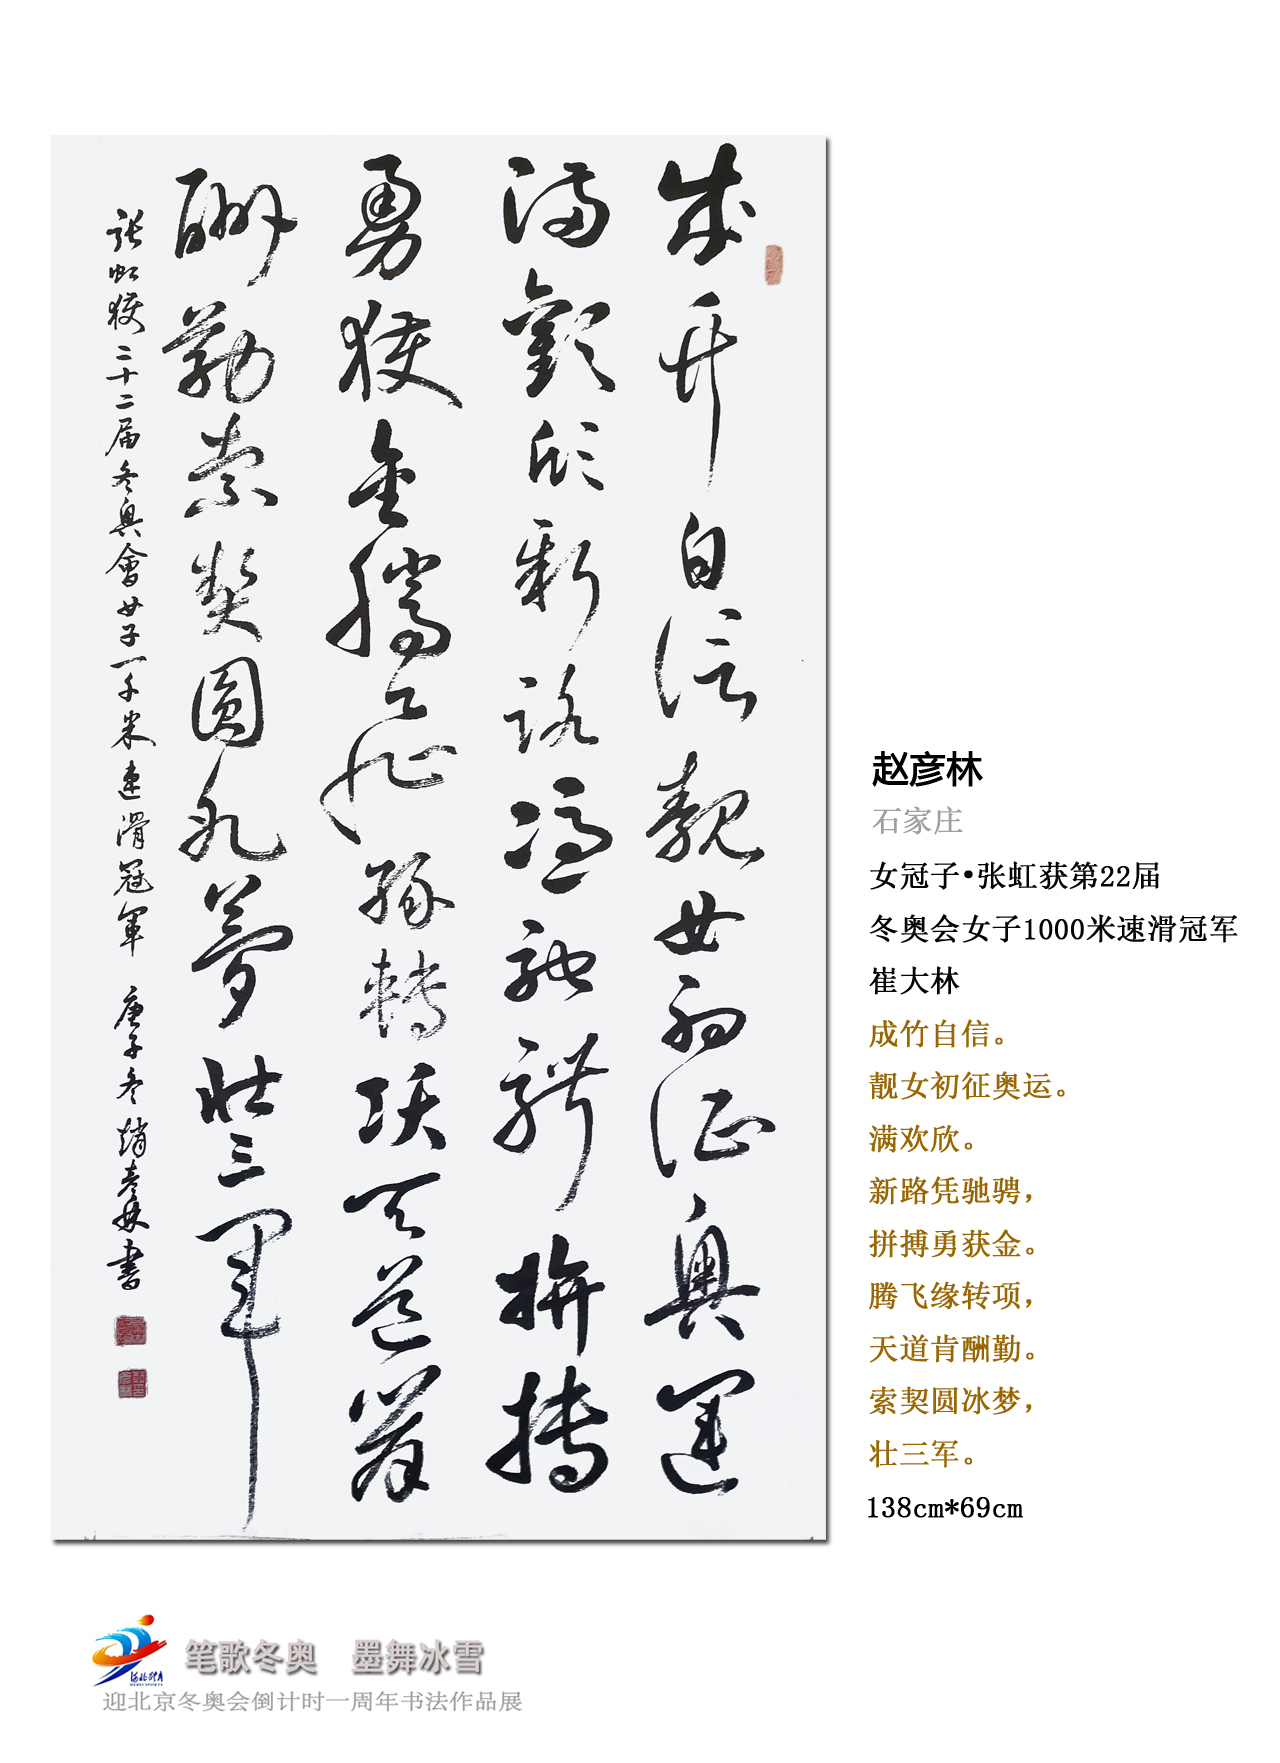 成竹自信靚女初征奥運
满歡欣新路憑馳騁拼搏
勇獲金騰飛緣轉項天道肯
酬勤索契圓冰夢壯三軍
張虹獲二十二届冬奥會女子一千米速滑冠軍 庚子冬趙彦林書
赵彦林
石家庄
女冠子•张虹获第22届
冬奥会女子1000米速滑冠军
崔大林
成竹自信。
靓女初征奥运。
满欢欣。
新路凭驰骋，
拼搏勇获金。
腾飞缘转项，
天道肯酬勤。
索契圆冰梦，
壮三军。
138cm*69cm
笔歌冬奥 墨舞冰雪
HEBEI SPORTS
迎北京冬奥会倒计时一周年书法作品展